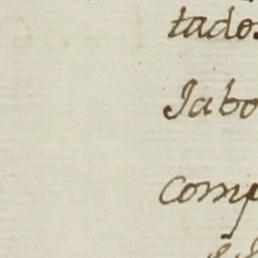 tados
Jabo
comp